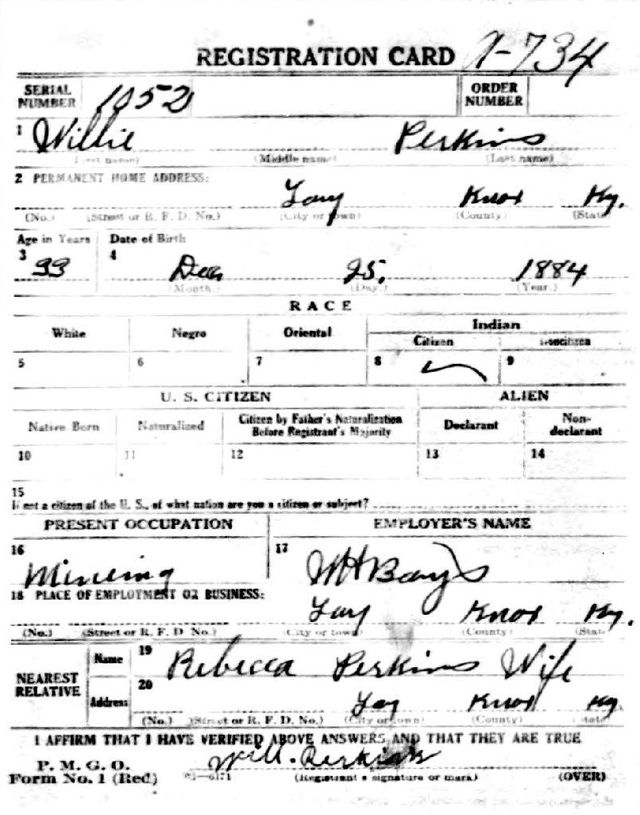 REGISTRATION CARD
SERIAL NUMBER 1052 ORDER NUMBER
1 Willie Perkins
(Middle name) (Last name)
2 PERMANENT HOME ADDRESS:
Knox Ky.
(No.) (Street or R. F. D. No.) (City or town) (County) (State)
Age in Years Date of Birth
3 33 4 Dec 25, 1884
(Month.) (Day.) (Year.)
RACE
White Negro Oriental Indian
Citizen Noncitizen
5 6 7 8 9
U. S. CITIZEN ALIEN
Native Born Naturalized Citizen by Father's Naturalization Before Registrant's Majority Declarant Non-declarant
10 11 12 13 14
15
If not a citizen of the U. S., of what nation are you a citizen or subject?
PRESENT OCCUPATION EMPLOYER'S NAME
16 Mineing 17
18 PLACE OF EMPLOYMENT OR BUSINESS:
Knox Ky.
(No.) (Street or R. F. D. No.) (City or town) (County) (State)
NEAREST RELATIVE Name 19 Rebecca Perkins Wife
Address 20 Knox Ky
(No.) (Street or R. F. D. No.) (City or town) (County) (State)
I AFFIRM THAT I HAVE VERIFIED ABOVE ANSWERS AND THAT THEY ARE TRUE
P. M. G. O.
Form No. 1 (Red) Will. Perkins
(Registrant's signature or mark) (OVER)